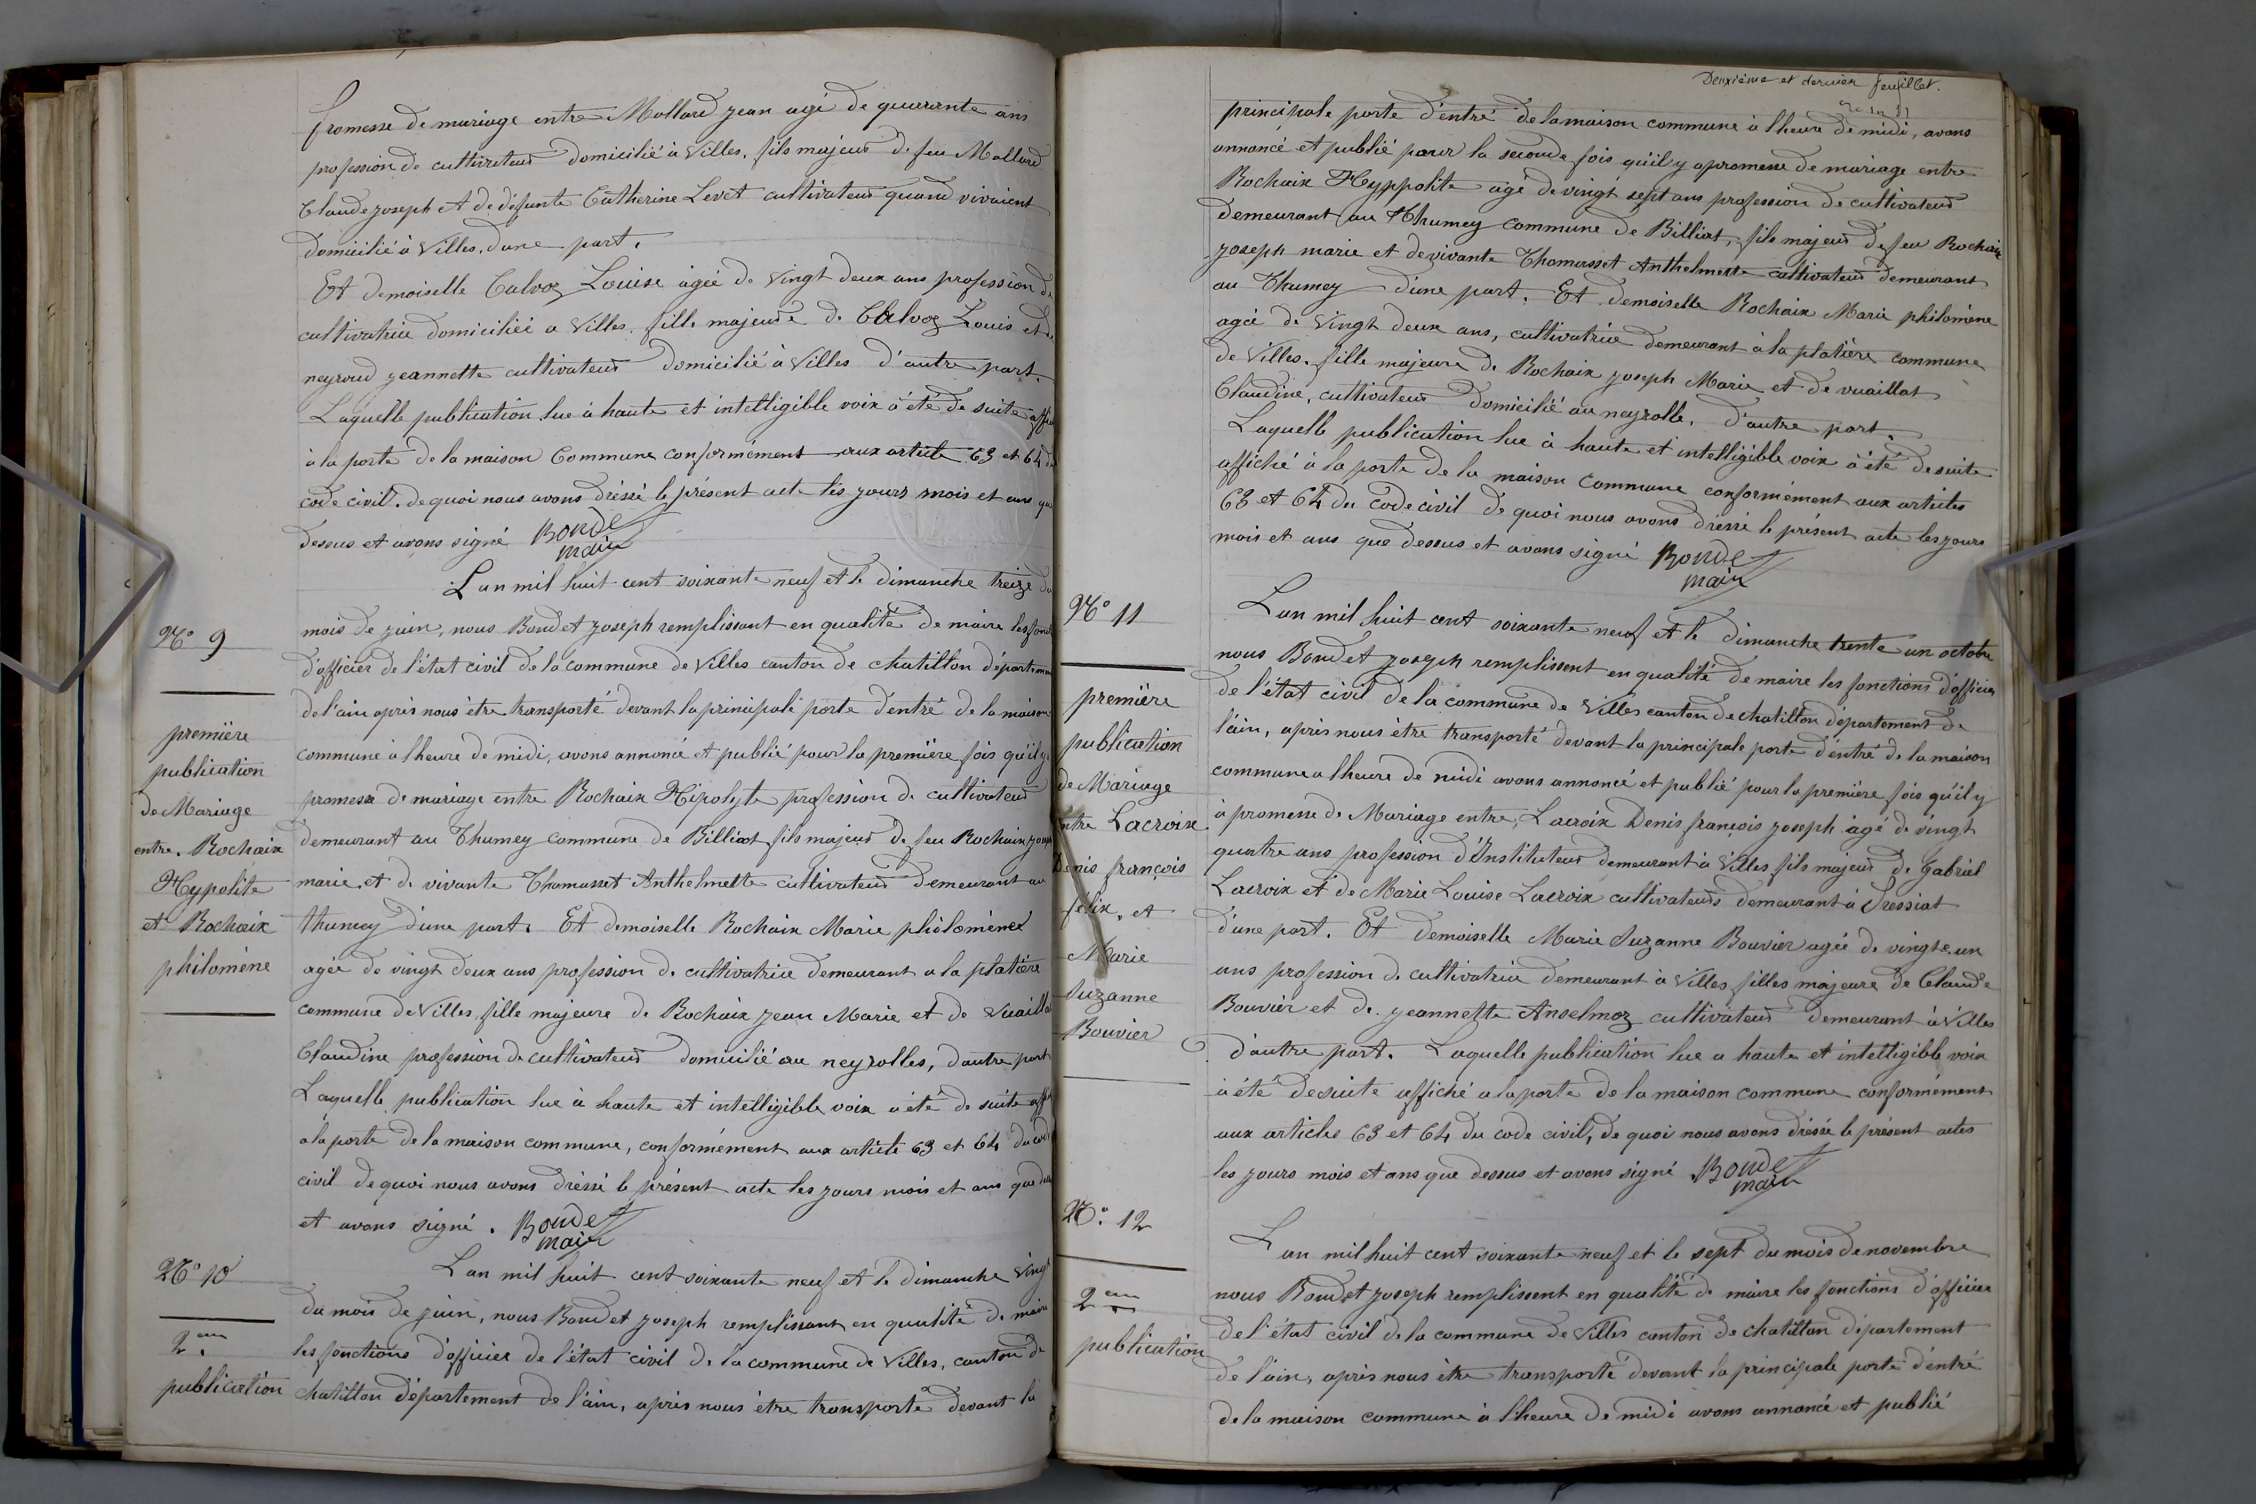 promesse de mariage entre Mollard jean agé de quarante ans
profession de cultivateur domicilié à Villes, fils majeur de feu Mollard
Claude joseph et de defunte Catherine Levet cultivateurs quand vivaient
domicilié à Villes, d'une part.
Et demoiselle Calvoz Louise agée de vingt deux ans profession de
cultivatrice domiciliée a Villes. fille majeure de Calvoz Louis et de
neyroud jeannette cultivateurs domicilié à Villes d'autre part.
Laquelle publication lue à haute et intelligible voix à été de suite
à la porte de la maison Commune conformément aux article 63 et 64 du
code civil. de quoi nous avons dréssé le présent acte les jours mois et ans que
dessus et avons signé Bondet
maire
N° 9
première
publication
de Mariage
entre. Rochaix
Hypolite
et Rochaix
philomène
L'an mil huit cent soixante neuf et le dimanche treize du
mois de juin, nous Bondet joseph remplissant en qualité de maire les
d'officier de l'état civil de la commune de Villes canton de chatillon départ
de l'ain après nous être transporté devant la principale porte d'entré de la maison
commune à lheure de midi, avons annoncé et publié pour la première fois qu'il y a
promesse de mariage entre Rochaix Hipolyte profession de cultivateur
demeurant au Thumey commune de Billiat fils majeur de feu Rochaix joseph
marie et de vivante Thomasset Anthelmette cultivateurs demeurant au
thumey d'une part. Et demoiselle Rochaix Marie philomène
agée de vingt deux ans profession de cultivatrice demeurant a la platière
commune de Villes, fille majeure de Rochaix jean Marie et de Vuaillat
Claudine profession de cultivateurs domicilié au neyrolles, d'autre part
Laquelle publication lue à haute et intelligible voix a été de suite
a la porte de la maison commune, conformément aux article 63 et 64 du code
civil de quoi nous avons dréssé le présent acte les jours mois et ans que
et avons signé. Bondet
maire
N° 10
2em
publication
L'an mil huit cent soixante neuf et le dimanche vingt
du mois de juin, nous Bondet joseph remplissant en qualité de maire
les fonctions d'officier de l'état civil de la commune de Villes, canton de
chatillon département de l'ain, après nous être transporté devant la
Deuxième et dernier feuillet.
principale porte d'entré de la maison commune à lheure de midi, avons
annoncé et publié pour la seconde fois qu'il y a promesse de mariage entre
Rochaix Hyppolite agé de vingt sept ans profession de cultivateur
demeurant au Thumey commune de Billiat, fils majeur de feu Rochaix
joseph marie et de vivante Thomasset Anthelmette cultivateurs demeurant
au Thumey d'une part. Et demoiselle Rochaix Marie philomène
agée de vingt deux ans, cultivatrice demeurant à la platière commune
de Villes. fille majeure de Rochaix joseph Marie et de vuaillat
Claudine, cultivateurs domicilié au neyrolle, d'autre part.
Laquelle publication lue à haute et intelligible voix à été de suite
affiché à la porte de la maison commune conformément aux articles
63 et 64 du code civil de quoi nous avons dréssé le présent acte les jours
mois et ans que dessus et avons signé Bondet
maire
N° 11
première
publication
de Mariage
entre Lacroix
Denis françois
félix, et
Marie
Suzanne
Bouvier
L'an mil huit cent soixante neuf et le dimanche trente un octobre
nous Bondet joseph remplissent en qualité de maire les fonctions d'officier
de l'état civil de la commune de Villes canton de chatillon département de
l'ain, après nous être transporté devant la principale porte d'entré de la maison
commune a lheure de midi avons annoncé et publié pour la première fois qu'il y
à promesse de Mariage entre, Lacroix Denis françois joseph agé de vingt
quatre ans profession d'Instituteur demeurant à Villes fils majeur de Gabriel
Lacroix et de Marie Louise Lacroix cultivateurs demeurant à Dressiat
d'une part. Et demoiselle Marie Suzanne Bouvier agée de vingt e un
ans profession de cultivatrice demeurant à Villes filles majeure de Claude
Bouvier et de jeannette Anselmoz cultivateurs demeurant à Villes
d'autre part. Laquelle publication lue a haute et intelligible voix
à été de suite affiché a la porte de la maison commune conformément
aux articles 63 et 64 du code civil, de quoi nous avons dréssé le présent actes
les jours mois et ans que dessus et avons signé Bondet
maire
N° 12
2em
publication
L'an mil huit cent soixante neuf et le sept du mois de novembre
nous Bondet joseph remplissent en qualité de maire les fonctions d'officier
de l'état civil de la commune de Villes canton de chatillon département
de l'ain, après nous être transporté devant la principale porte d'entré
de la maison commune à lheure de midi avons annoncé et publié